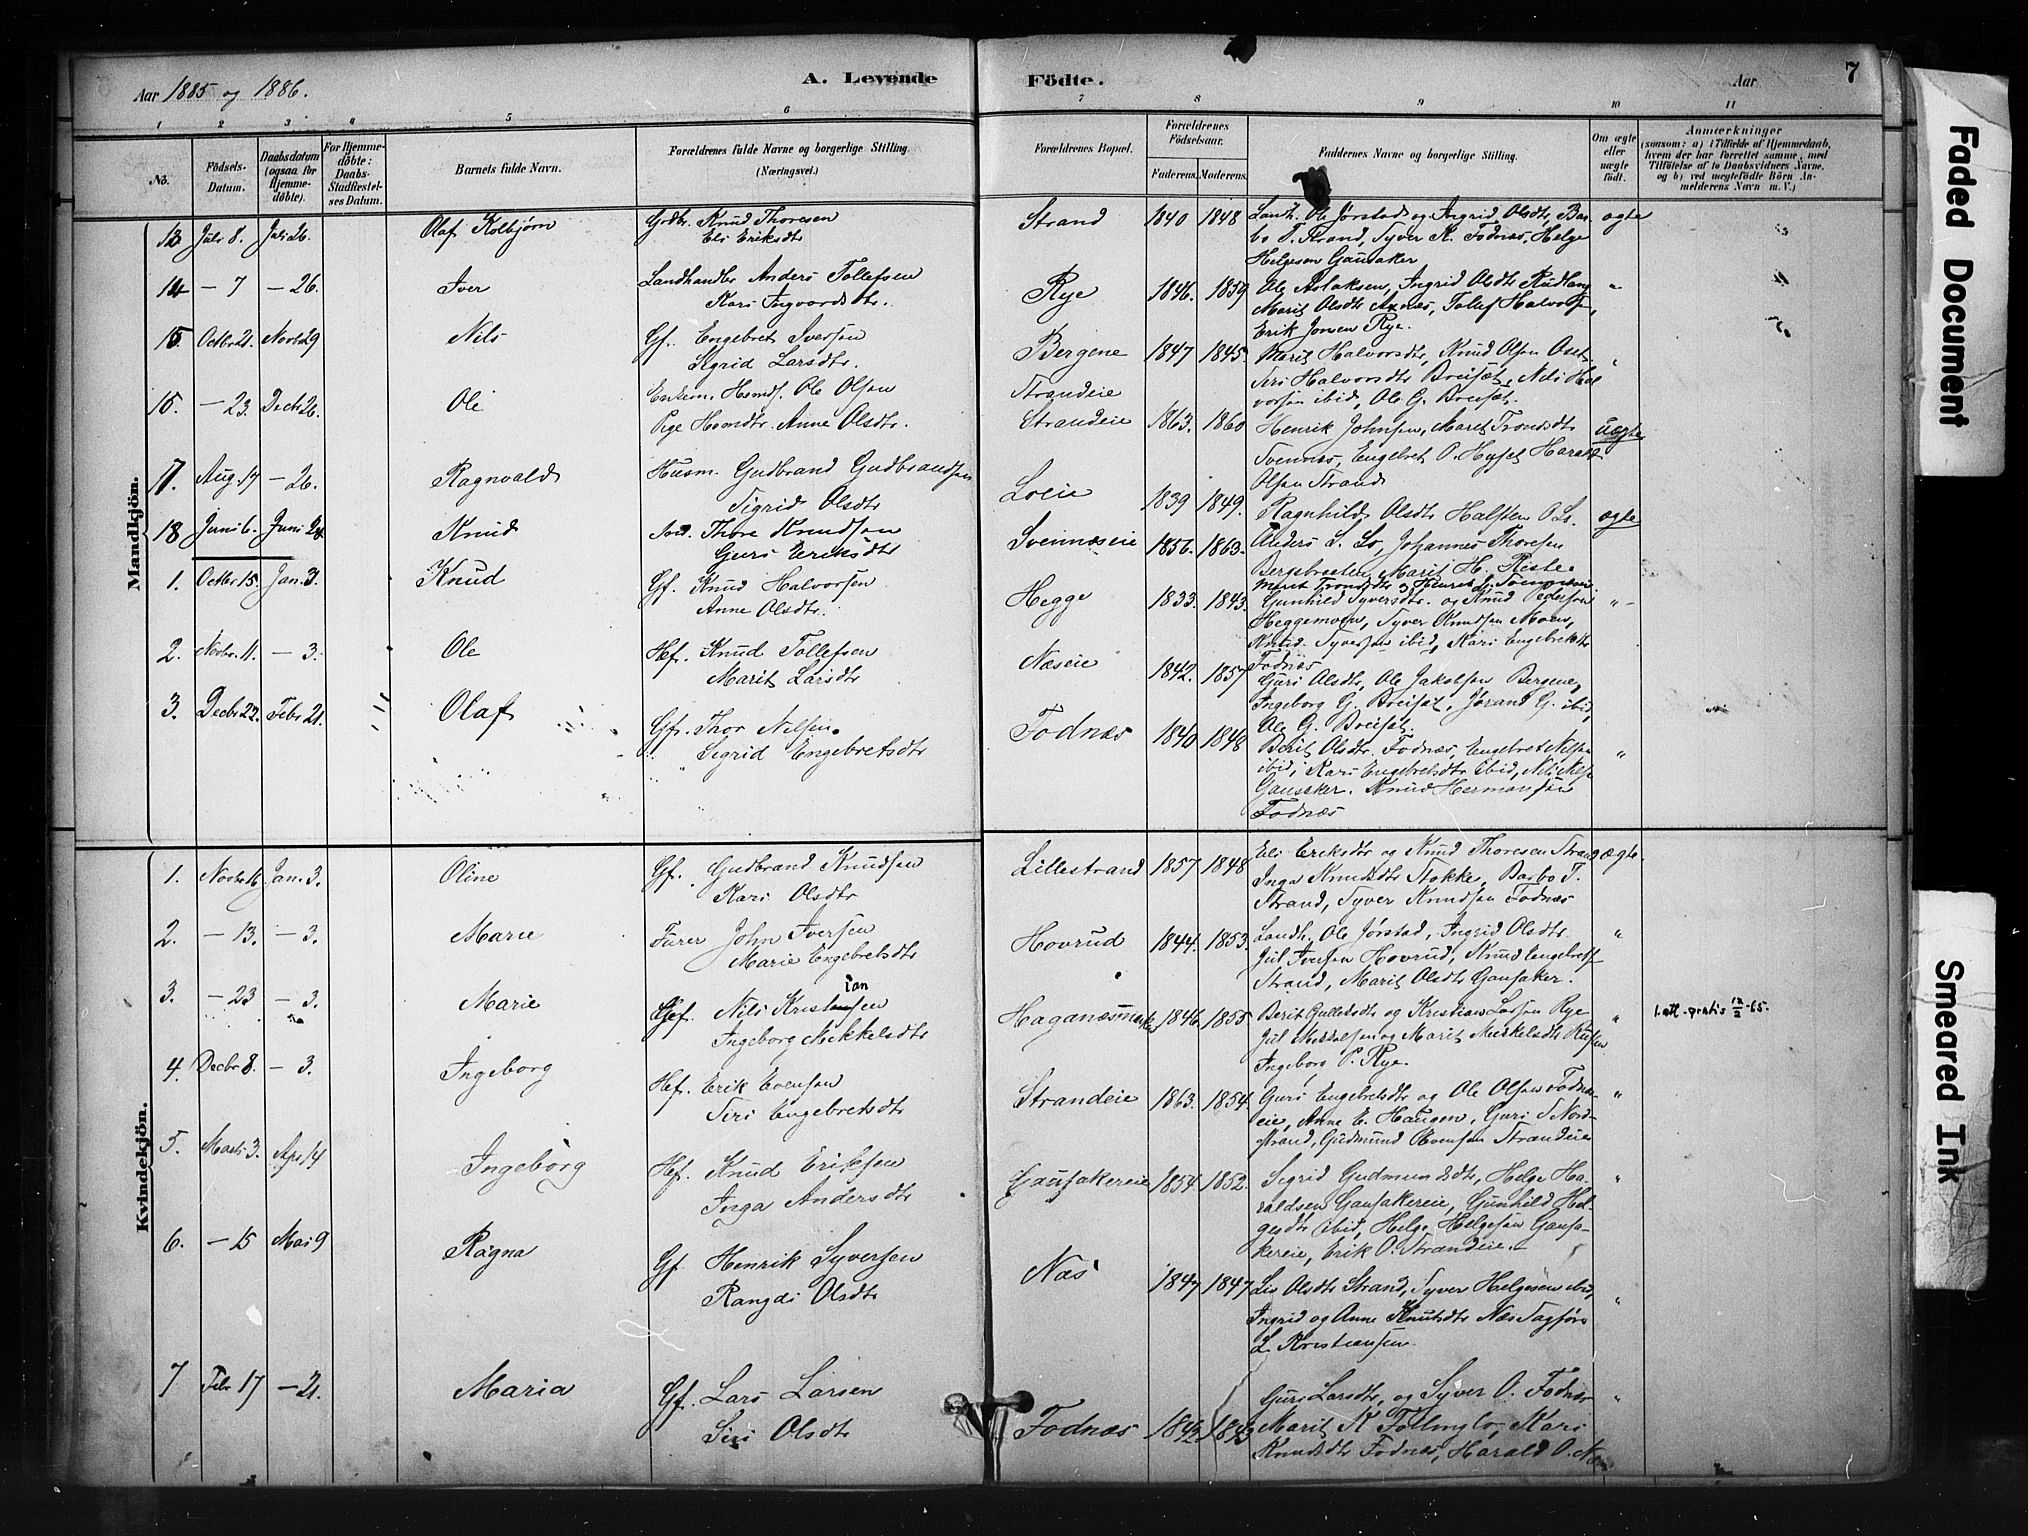 Aar 1885 og 1886.
A. Levende Födte.
Aar
7
1 2 3 4 5 6 7 8 9 10 11
No.
Födsels-Datum.
Daabsdatum (ogsaa for Hjemme-döbte).
For Hjemme-döbte: Daabs-Stadfæstel-ses Datum.
Barnets fulde Navn.
Forældrenes fulde Navne og borgerlige Stilling (Næringsvei.)
Forældrenes Bopæl.
Forældrenes Födselsaar.
Faderens. Moderens.
Faddernes Navne og borgerlige Stilling.
Om ægte eller uægte födt.
Anmærkninger
(saasom: a) i Tilfælde af Hjemmedaab, hvem der har forrettet samme, med Tilföielse af to Daabsvidners Navne, og b) ved uægtefödte Börn Anmelderens Navn m. V.)
Mandkjön.
13 Juli 8. Juli 26. Olaf Kolbjørn Grdbr. Knud Thoresen Strand 1840 1848 Landh. Ole Jørstad og Ingrid Olsdtr, Bar- ægte
Eli Eriksdtr bo T. Strand, Syver K. Fodnæs, Helge
Helgesen Gausaker
14 — 7 — 26. Iver Landhandler Anders Tollefsen Rye 1846. 1859 Ole Aslaksen, Ingrid Olsdtr Rudlang "
Kari Ingvordsdtr. Marit Olsdtr Axnæs, Tollef Halvorsen,
Erik Jonsen Rye.
15. Octbr 21. Novbr 29 Nils Gf. Engebret Iversen Bergene 1847 1845. Marit Halvorsdtr, Knud Olsen Oset "
Sigrid Larsdtr. Siri Halvorsdtr Breiset, Nils Hal
vorsen ibid, Ole G. Breiset.
Strandeie
— 23. Decbr 26. Ole Ole Olsen Strandeie 1863. 1860 Henrik Johnsen, Marit Trondsdtr uægte
Pige Anne Olsdtr. Svennæs, Engebret O. Harald
Olsen Strand
17. Aug. 17 — 26. Ragnvald Husm. Gudbrand Gudbrandsen Loeie 1839 1849. Ragnhild Olsdtr Halsten O Lo. ægte
Sigrid Olsdtr Anders L. Lo, Johannes Thoresen
Bergsbraaten, Marit H. Riste.
18 Juni 6. Juni 24 Knud Thore Knudsen Svennæseie 1856. 1863. Marit Trondsdtr og Henrik
Guri Eriksdtr
1. Octbr 15. Jan. 3. Knud Gf. Knud Halvorsen Hegge 1833. 1843. Gunhild Syversdtr. og Knud Pedersen "
Anne Olsdtr. Heggemoen, Syver Knudsen Moen,
Knud Syversen ibid, Kari Engebretsdtr
Fodnæs
2. Novbr. 11. — 3. Ole Hef. Knud Tollefsen Næseie 1842. 1857 Guri Olsdtr, Ole Jakobsen Bergene,
Marit Larsdtr Ingeborg G. Breiset, Jorand G. ibid,
Ole G. Breiset.
3. Decbr 22. Febr 21. Olaf Gf. Thor Nilsen. Fodnæs 1840 1848 Berit Olsdtr. Fodnæs, Engebret Nilsen "
Sigrid Engebretsdtr ibid, Kari Engebretsdtr ibid, Nils Nilsen
Gausaker. Knud Hermansen
Fodnæs
Kvindekjön.
1. Novbr 16 Jan. 3. Oline Gf. Gudbrand Knudsen Lillestrand 1857 1848 Eli Eriksdtr og Knud Thoresen Strand ægte.
Kari Olsdtr Inga Knudsdtr Stokke, Barbo T.
Strand, Syver Knudsen Fodnæs
2. — 13. — 3. Marie Furer John Iversen Hovrud 1844. 1853. Landh. Ole Jørstad, Ingrid Olsdtr. "
Marie Engebretsdtr Jul Iversen Hovrud, Knud Engebretsen
Strand, Marit Olsdtr Gausaker.
3. — 23 — 3. Marie Gf. Nils Kristiansen Haganæsmark 1846. 1855 Berit Gulleksdtr og Kristian Larsen Rye " 1. att. gratis 12/2-65.
Ingeborg Mikkelsdtr Jul Mikkelsen og Marit Mikkelsdtr
Ingeborg P. Rye.
4. Decbr 8. — 3. Ingeborg Hef. Erik Evensen Strandeie 1863. 1854. Guri Engebretsdtr og Ole Olsen Fodnæs- "
Siri Engebretsdtr eie, Anne E. Haugen, Guri S Nord-
strand, Gudmund Evensen Strandeie
5. Marts 3. Apr 4 Ingeborg Hef. Knud Eriksen Gausakereie 1854. 1852. Sigrid Gudmundsdtr, Helge Ha- "
Inga Andersdtr raldsen Gausakereie, Gunhild Hel-
gesdtr ibid, Helge Helgesen Gausa-
kereie, Erik O. Strandeie.
6. — 15 Mai 9 Ragna Gf. Henrik Syversen Næs 1847 1847 Lis Olsdtr Strand, Syver Helgesen ibid, "
Rangdi Olsdtr Ingrid og Anne Knutsdtr Næs
L. Kristiansen
7 Febr 17 — 21. Maria Gf. Lars Larsen Fodnæs 1842 1843 Guri Larsdtr, og Syver O. Fodnæs "
Siri Olsdtr Marit K Kari
Knudsdtr Fodnæs, Harald O. Næs
Faded Document
Smeared Ink